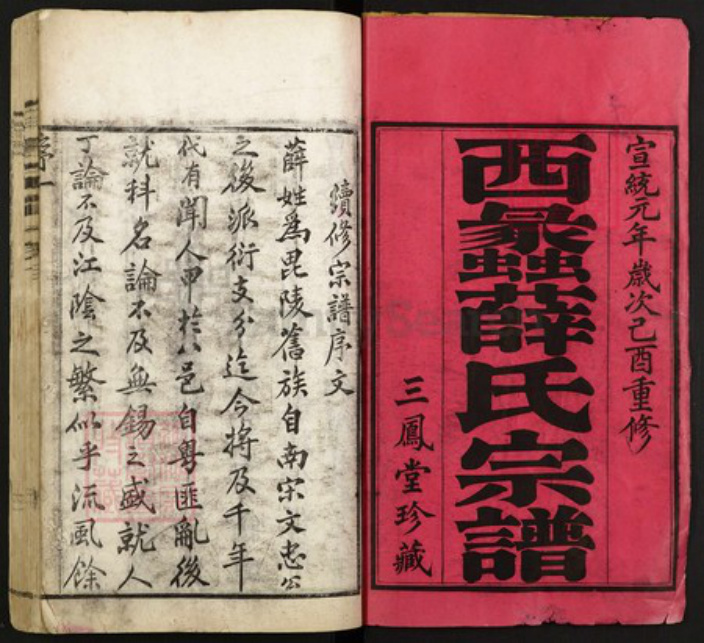 宣統元年歲次己酉重修
西蠡薛氏宗譜
三鳳堂珍藏
續修宗譜序文
薛姓為毘陵舊族自南宋文忠公
之後派衍支分迄今將及千年
代有聞人甲於八邑自粵匪亂後
就科名論不及無錫之盛就人
丁論不及江陰之繁似乎流風餘
序一